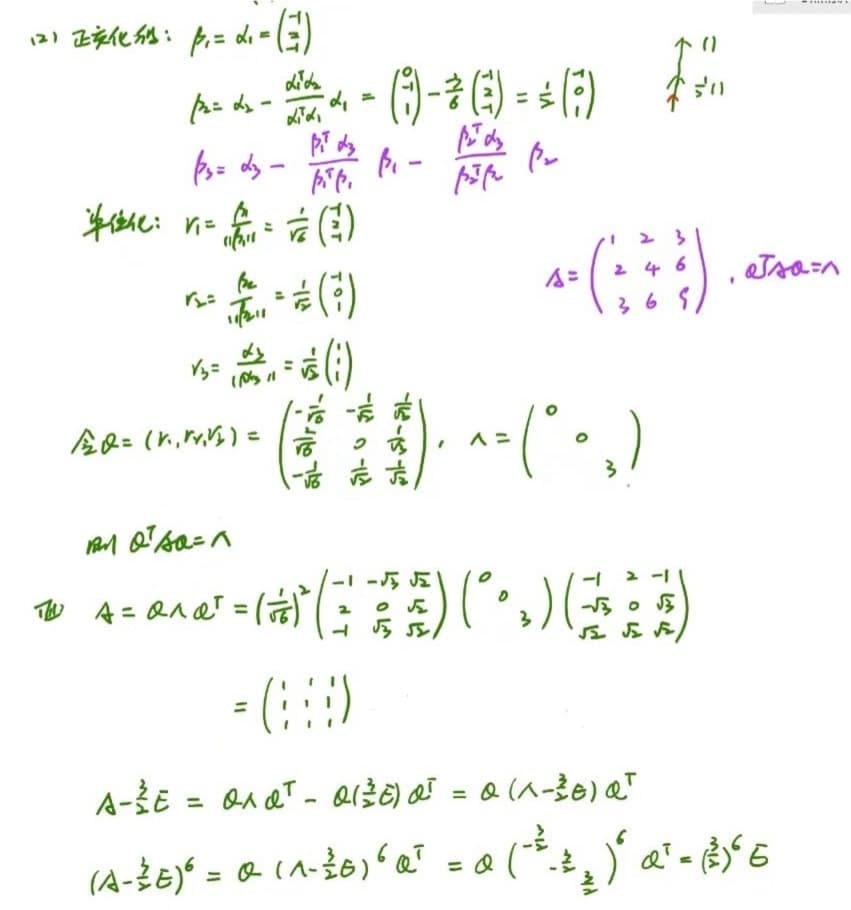 (2) 正交化得: β₁ = α₁ = (-1 2 -1)
β₂ = α₂ - α₁ᵀα₂/α₁ᵀα₁ α₁ = (0 -1 1) - -3/6 (-1 2 -1) = 1/2 (-1 0 1)
β₃ = α₃ - β₁ᵀα₃/β₁ᵀβ₁ β₁ - β₂ᵀα₃/β₂ᵀβ₂ β₂
单位化: r₁ = β₁/||β₁|| = 1/√6 (-1 2 -1)
A = (1 2 3
2 4 6
3 6 9), QᵀAQ = Λ
r₂ = β₂/||β₂|| = 1/√2 (-1 0 1)
r₃ = α₃/||α₃|| = 1/√3 (1 1 1)
令Q = (r₁, r₂, r₃) = (-1/√6 -1/√2 1/√3
2/√6 0 1/√3
-1/√6 1/√2 1/√3), Λ = (0 0 3)
则 QᵀAQ = Λ
A = QΛQᵀ = (1/√6)² (-1 -√3 √2
2 0 √2
-1 √3 √2) (0 0 3) (-1 2 -1
-√3 0 √3
√2 √2 √2)
= (1 1 1
1 1 1
1 1 1)
A - 3/2 E = QΛQᵀ - Q(3/2 E)Qᵀ = Q(Λ - 3/2 E)Qᵀ
(A - 3/2 E)⁶ = Q(Λ - 3/2 E)⁶Qᵀ = Q(-3/2 -3/2 3/2)⁶ Qᵀ = (3/2)⁶ E